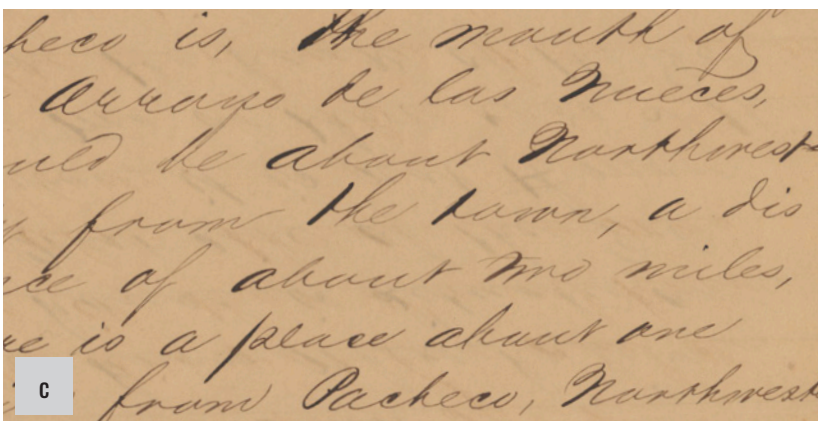 heco is, the mouth of
Arroyo de las Nueces,
uld be about Northwest
y from the town, a dis
ce of about two miles,
re is a place about one
from Pacheco, Northwest
C